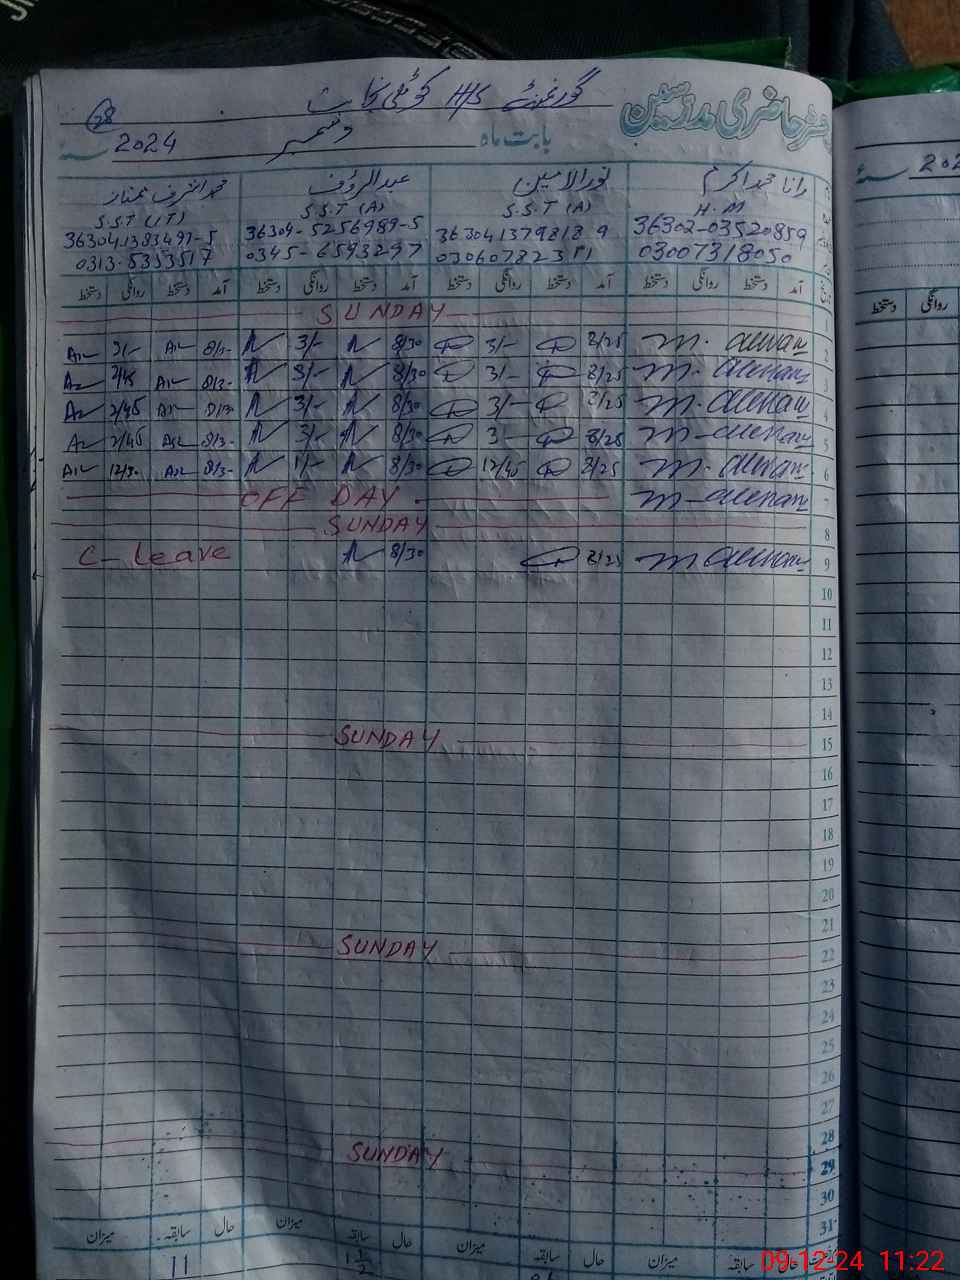 رجسٹر حاضری مدرسین
گورنمنٹ H/S کوٹلی نجابت
28
بابت ماہ دسمبر 2024 سنہ
رانا محمد اکرم نورالامین عبدالرؤف محمد اشرف ممتاز
H.M S.S.T (A) S.S.T (A) S.S.T (IT)
36302-03520859 3630413798189 36304-5256989-5 363041383491-5
03007318050 0345-6593297 0313-5353517
آمد دستخط روانگی دستخط آمد دستخط روانگی دستخط آمد دستخط روانگی دستخط آمد دستخط روانگی دستخط
1 SUNDAY
2 8/25 3/- 8/30 3/- 3/-
3 8/25 3/- 8/30 3/- 2/45
4 8/25 3/- 8/30 3/- 2/45
5 8/25 3 8/30 3/- 2/45
6 8/25 12/45 8/30 1/- 12/30
7 OFF DAY
8 SUNDAY
9 8/25 8/30 C-Leave
10
11
12
13
14
15 SUNDAY
16
17
18
19
20
21
22 SUNDAY
23
24
25
26
27
28
29 SUNDAY
30
31
حال سابقہ میزان حال سابقہ میزان حال سابقہ میزان حال سابقہ میزان
11
202
روانگی دستخط
09-12-24 11:22